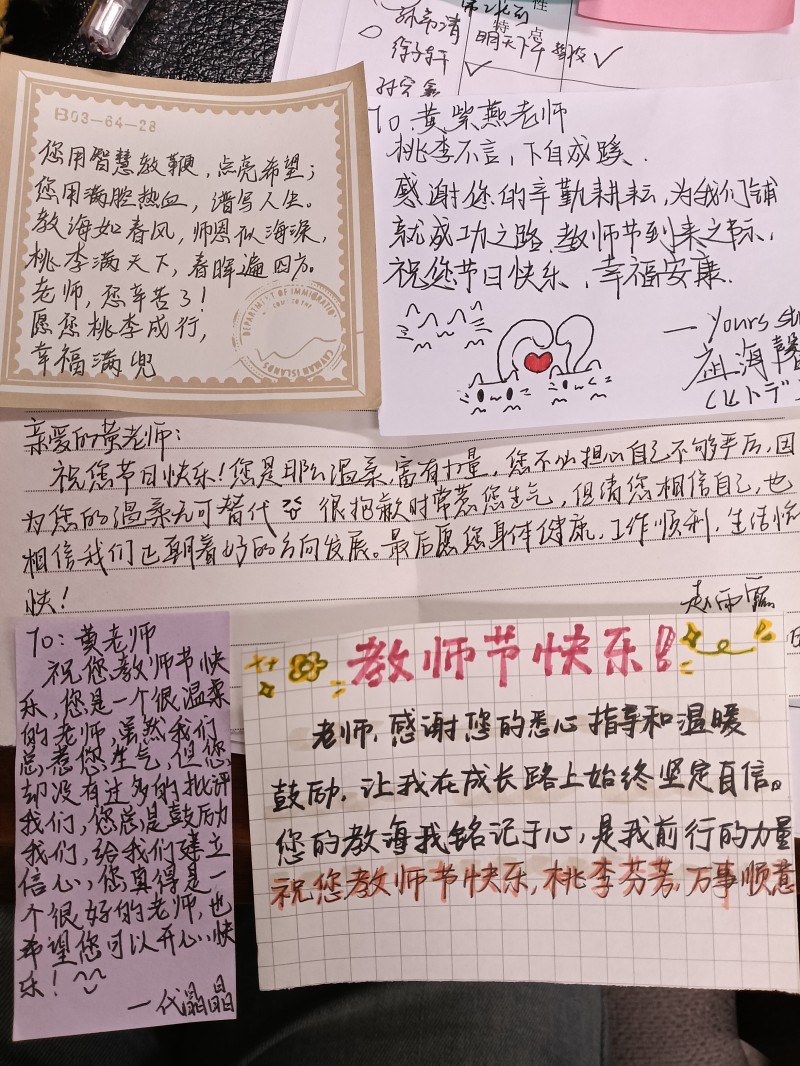 性
特点
明天下午
B03-64-28
您用智慧教鞭，点亮希望；
您用满腔热血，谱写人生。
教诲如春风，师恩似海深，
桃李满天下，春晖遍四方。
老师，您辛苦了！
愿您桃李成行，
幸福满兜
DEPARTMENT OF IMMIGRATION
CAYMAN ISLANDS
To：黄紫燕老师
桃李不言，下自成蹊.
感谢您的辛勤耕耘，为我们铺
就成功之路.教师节到来之际，
祝您节日快乐、幸福安康.
— Yours st
海馨
亲爱的黄老师：
祝您节日快乐！您是那么温柔，富有力量，您不必担心自己不够严厉，因
为您的温柔无可替代 很抱歉时常惹您生气，但请您相信自己，也
相信我们正朝着好的方向发展。最后愿您身体健康，工作顺利，生活愉
快！
To：黄老师
祝您教师节快
乐，您是一个很温柔
的老师，虽然我们
总惹您生气，但您
却没有过多的批评
我们，您总是鼓励
我们，给我们建立
信心，您真得是一
个很好的老师，也
希望您可以开心快
乐！
一代晶晶
教师节快乐！
老师，感谢您的悉心指导和温暖
鼓励，让我在成长路上始终坚定自信。
您的教诲我铭记于心，是我前行的力量
祝您教师节快乐，桃李芬芳，万事顺意